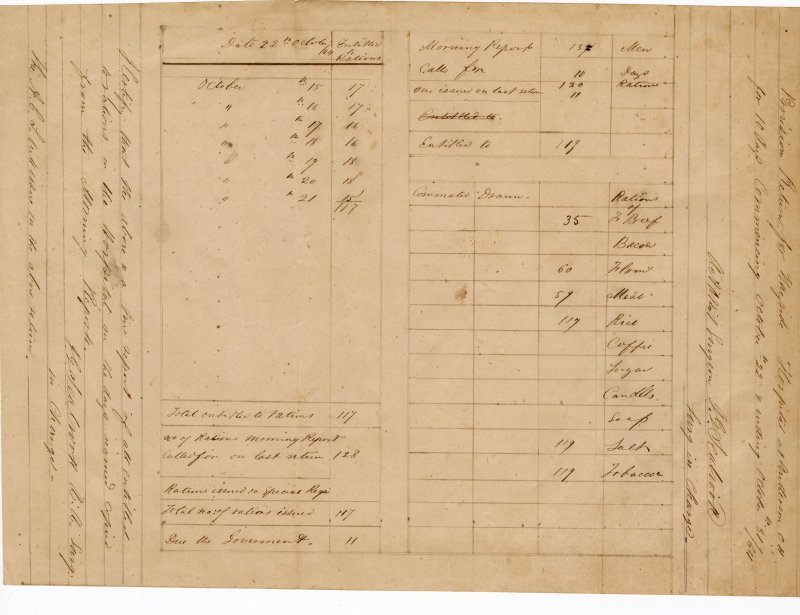 Provision Return for Wayside Hospital at
for 10 Days Commencing October 22 & ending October 31st /64
Surgeon
Surg in Charge
Date 22nd October
Entitled
to
Rations
October
" 15 17
" " 16 17
" " 17 16
" " 18 16
" " 19 18
" " 20 18
" " 21 15
117
Total entitled to rations 117
no of Rations Morning Report
Called for on last return 128
Rations issued on Special Reqn
Total no: of rations issued 117
Due the Goverment. 11
Morning Report 13 Men
Calls for 10 Days
Over issued on last return 130 Rations
11
Entitled to
Entitled to 119
Commuted Drawn.
Rations
of
35 F Beef
Bacon
60 Flour
59 Meal
119 Rice
Coffee
Sugar
Candles
Soap
119 Salt
119 Tobacco
I certify that the above is a true report of all entitled
to rations in the Hospital on the days named copied
from the Morning Reports.
Surg
in Charge
The A. C. S. will issue on the above return.